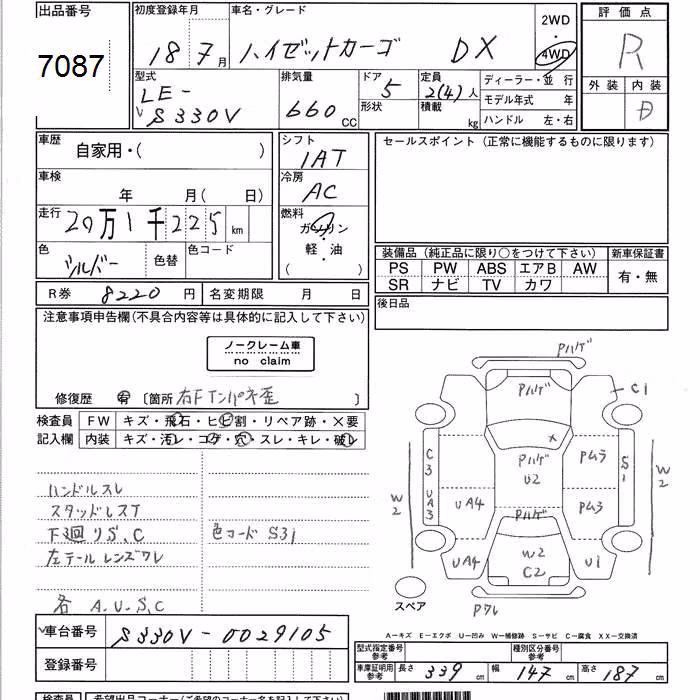 出品番号
7087
初度登録年月
18 7月
車名・グレード
ハイゼットカーゴ DX
2WD
・
4WD
評価点
R
外装 内装
D
型式
LE-
S330V
排気量
660 CC
ドア
5
形状
定員
2(4)人
積載
kg
ディーラー・並行
モデル年式 年
ハンドル 左・右
車歴
自家用・( )
車検
年 月( 日)
走行
20万1千225 km
色
シルバー
色替
色コード
シフト
IAT
冷房
AC
燃料
ガソリン
・
軽・油
( )
セールスポイント(正常に機能するものに限ります)
装備品(純正品に限り○をつけて下さい)
PS PW ABS エアB AW
SR ナビ TV カワ
新車保証書
有・無
R券 8220円
名変期限 月 日
後日品
注意事項申告欄(不具合内容等は具体的に記入して下さい)
ノークレーム車
no claim
修復歴 有 〔箇所 右Fインパネ歪 〕
検査員
記入欄
FW キズ・飛石・ヒビ割・リペア跡・×要
内装 キズ・汚レ・コゲ・穴・スレ・キレ・破レ
ハンドルスレ
スタッドレスT
下廻りS、C
色コード S31
左テールレンズワレ
各 A、U、S、C
Pハゲ
Pハゲ
C1
×
Pハゲ
U2
Pムラ
C3
UA3
S1
W2
W2
UA4
Pム3
Pハゲ
UA4
W2
C2
U1
スペア
Pワレ
A-キズ E-エクボ U-凹み W-補修跡 S-サビ C-腐食 XX-交換済
車台番号
S330V-0029105
登録番号
型式指定番号
参考
種別区分番号
参考
車庫証明用
参考
長さ 339 cm 幅 147 cm 高さ 187 cm
検査員
希望出品コーナー(ご希望のコーナー名を記入して下さい)